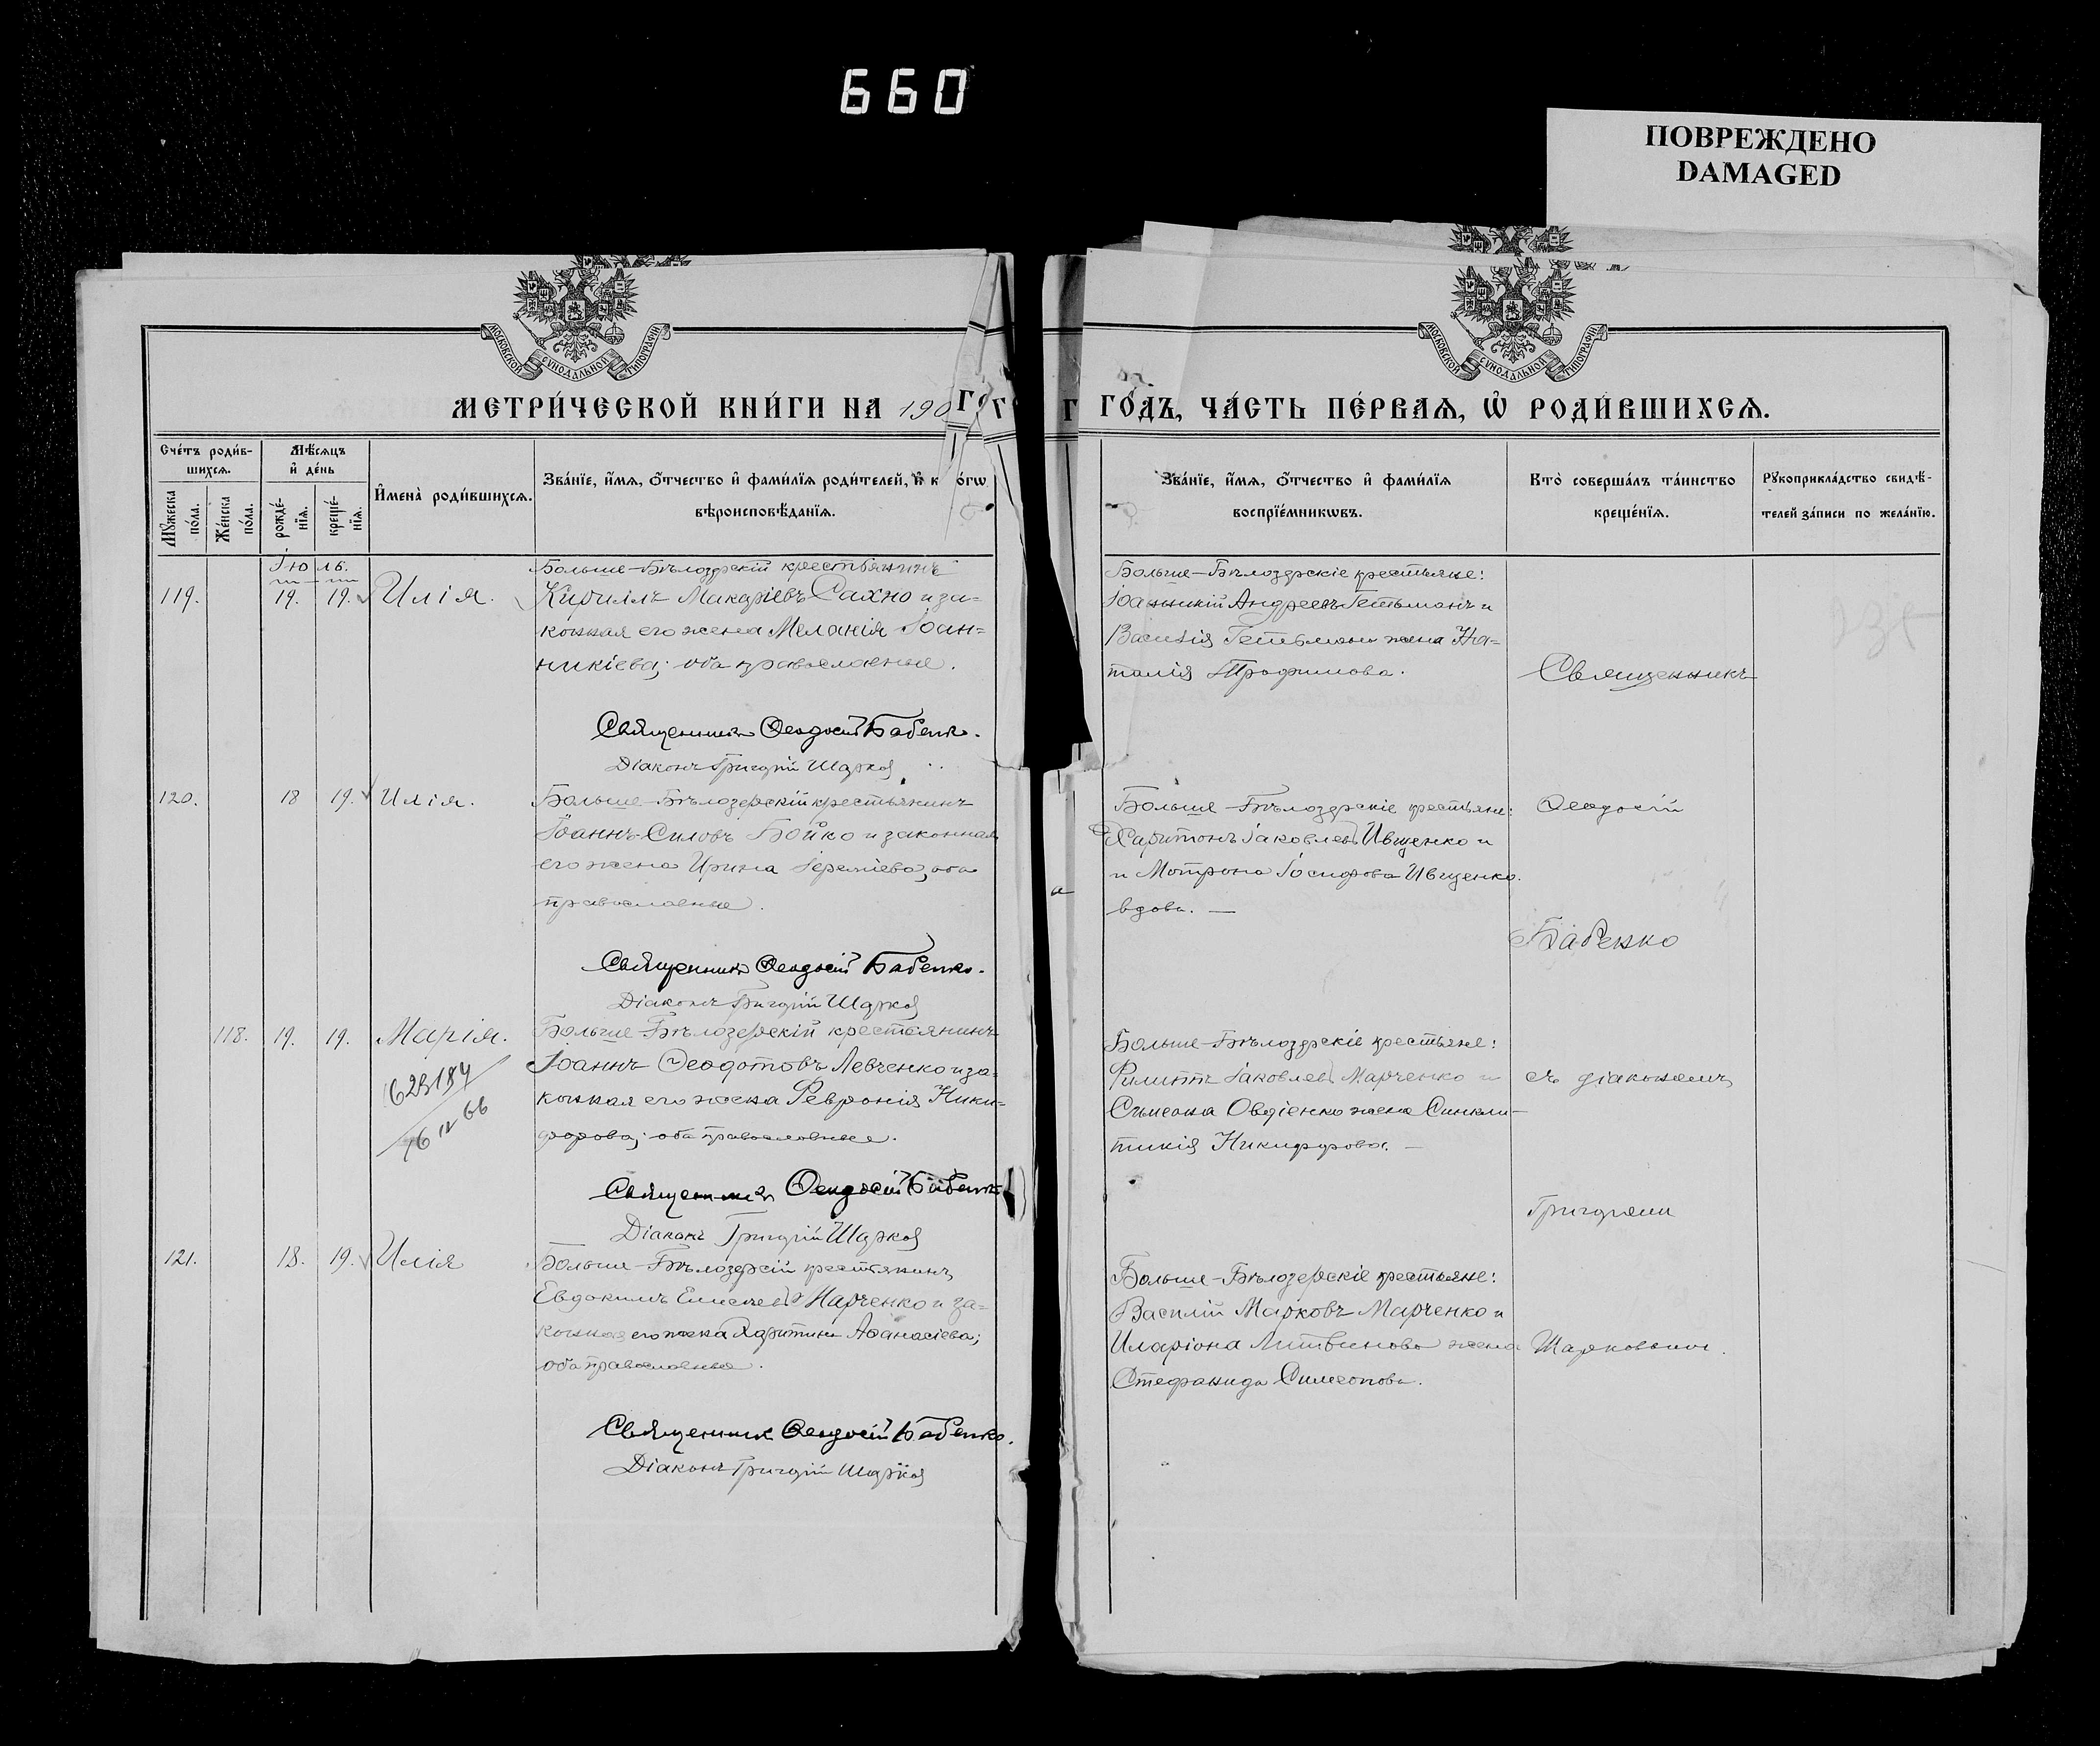 660
ПОВРЕЖДЕНО
DAMAGED
МОСКОВСКОЙ СѴНОДАЛЬНОЙ ТИПОГРАФІИ
МОСКОВСКОЙ СѴНОДАЛЬНОЙ ТИПОГРАФІИ
МЕТРИ́ЧЕСКОЙ КНИ́ГИ НА 190
ГО́ДЪ, ЧА́СТЬ ПЕ́РВАѦ, Ѽ РОДИ́ВШИХСѦ.
Сче́тъ роди́в-
шихсѧ.
Мꙋ́жеска по́ла.
Же́нска по́ла.
Мѣ́сѧцъ
и҆ де́нь
рожде́-нїѧ.
креще́-нїѧ.
И҆мена̀ роди́вшихсѧ.
Зва́нїе, и҆́мѧ, ѻ҆́тчество и҆ фами́лїѧ роди́телей, и҆ к о́гѡ
вѣроисповѣ́данїѧ.
Зва́нїе, и҆́мѧ, ѻ҆́тчество и҆ фами́лїѧ
воспрїе́мникѡвъ.
Кто̀ соверша́лъ та́инство
креще́нїѧ.
Рꙋкоприкла́дство свидѣ́-
телей за́писи по жела́нїю.
Іюль.
119. 19. 19. Илія.
Больше-Бѣлоздрскій крестьянинъ
Кириллъ Макаріевъ Сахно и за-
конная его жена Меланія Іоан-
никіева; оба православные.
Священникъ Ѳеодосій Бабенко.
Діаконъ Григорій Шарков
Больше-Бѣлоздрскіе крестьяне:
Іоанникій Андреевъ Гетьманъ и
Василія Гетьмана жена На-
талія Трофимова.
Священникъ
120. 18 19. Илія.
Больше-Бѣлозерскій крестьянинъ
Іоаннъ Силовъ Бойко и законная
его жена Ирина Іереміева, оба
православные.
Священникъ Ѳеодосій Бабенко.
Діаконъ Григорій Шарков
Больше-Бѣлоздрскіе крестьяне:
Харитонъ Іаковлевъ Ивщенко и
и Мотрона Іосифова Ивщенко.
вдова. —
Ѳеодосій
Бабенко
118. 19. 19. Марія.
623184
16 IV 66
Больше-Бѣлозерскій крестьянинъ
Іоаннъ Ѳеодотовъ Левченко и за-
конная его жена Февронія Ники-
форова; оба православные.
Священникъ Ѳеодосій Бабенко
Діаконъ Григорій Шарков
Больше-Бѣлоздрскіе крестьяне:
Филиппъ Іаковлевъ Марченко и
Сѵмеона Овдіенко жена Синкли-
тикія Никифорова. —
съ діакономъ
Григоріемъ
121. 18. 19. Илія
Больше-Бѣлозерсій крестьянинъ
Евдокимъ Елисеевъ Марченко и за-
конная его жена Харитина Аѳанасіева;
оба православные.
Священникъ Ѳеодосій Бабенко.
Діаконъ Григорій Шарков
Больше-Бѣлозерскіе крестьяне:
Василій Марковъ Марченко и
Иларіона Литвинова жена
Стефанида Симеонова.
Шарковымъ.